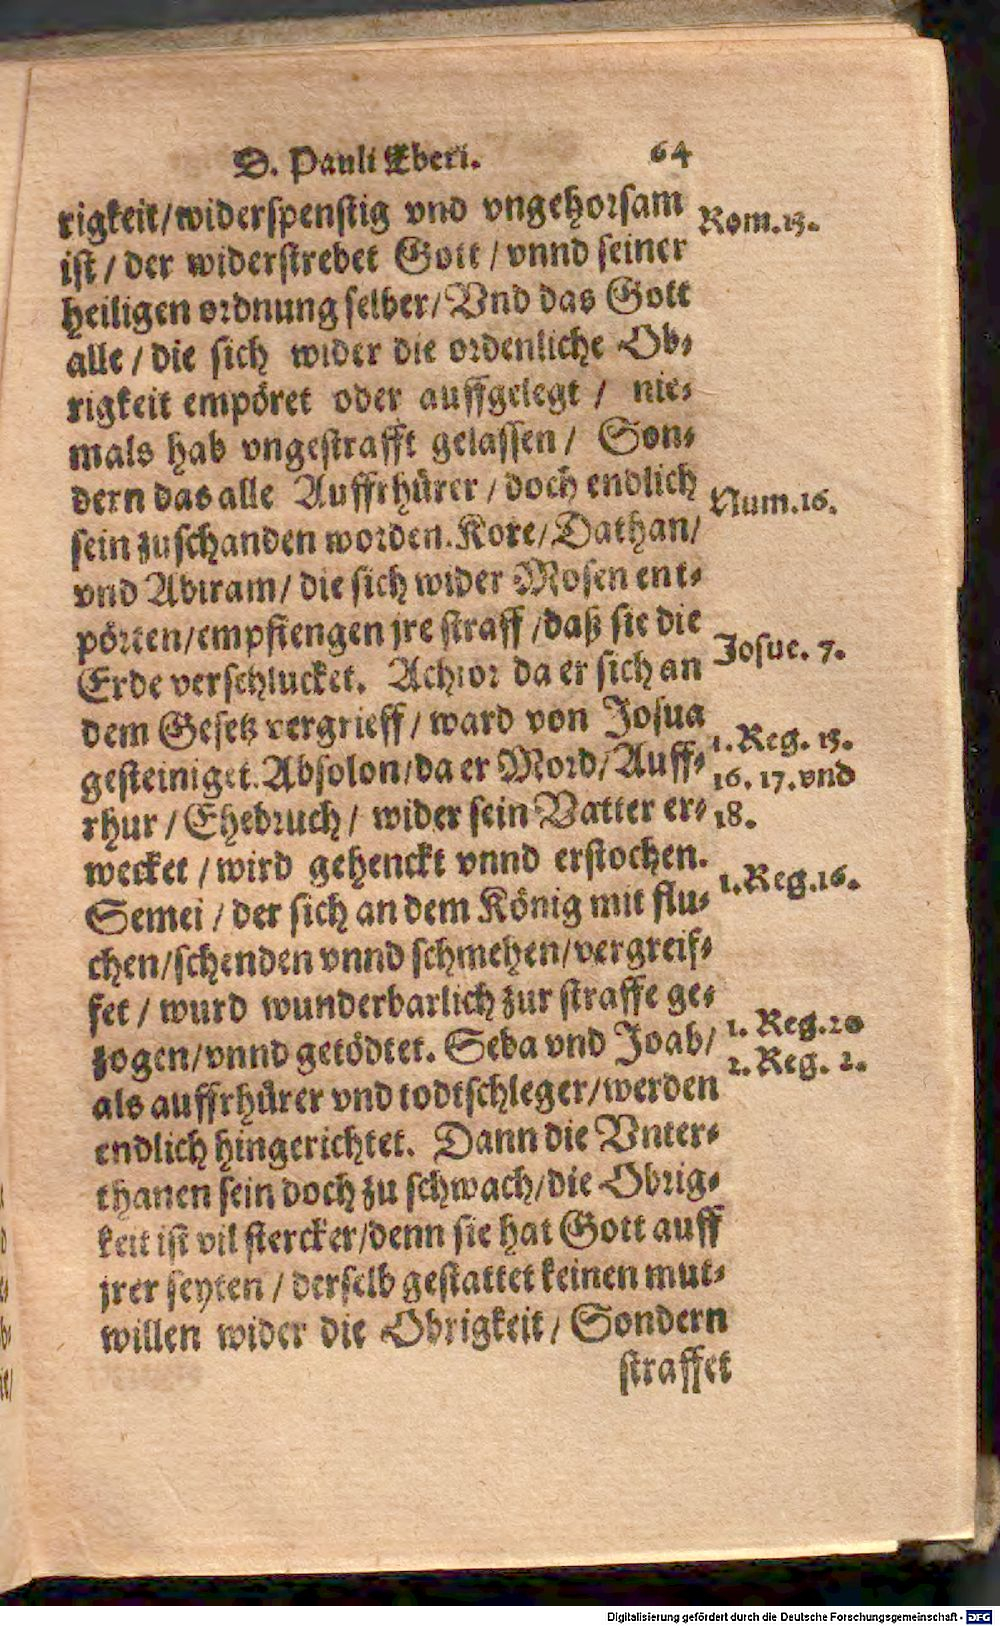 D. Pauli Eberi. 64
rigkeit/widerspenstig vnd vngehorsam
Rom.13.
ist / der widerstrebet Gott / vnnd seiner
heiligen ordnung selber/Vnd das Gott
alle / die sich wider die ordenliche Ob⸗
rigkeit empöret oder auffgelegt / nie⸗
mals hab vngestrafft gelassen / Son⸗
dern das alle Auffrhürer / doch endlich
Num.16.
sein zuschanden worden.Kore/Dathan/
vnd Abiram/ die sich wider Mosen ent⸗
pörten/empfiengen jre straff /daß sie die
Josue. 7.
Erde verschlucket. Achior da er sich an
dem Gesetz vergrieff / ward von Josua
1. Reg. 15.
gesteiniget.Absolon/da er Mord/Auff⸗
16. 17.vnd
rhur / Ehebruch / wider sein Vatter er⸗
18.
wecket / wird gehenckt vnnd erstochen.
1.Reg.16.
Semei / der sich an dem König mit flu⸗
chen/schenden vnnd schmehen/vergreif⸗
fet / wurd wunderbarlich zur straffe ge⸗
1. Reg.20
zogen/vnnd getödtet. Seba vnd Joab/
2.Reg. 2.
als auffrhürer vnd todtschleger/werden
endlich hingerichtet. Dann die Vnter⸗
thanen sein doch zu schwach/die Obrig⸗
keit ist vil stercker/denn sie hat Gott auff
jrer seyten / derselb gestattet keinen mut⸗
willen wider die Obrigkeit / Sondern
straffet
Digitalisierung gefördert durch die Deutsche Forschungsgemeinschaft - DFG